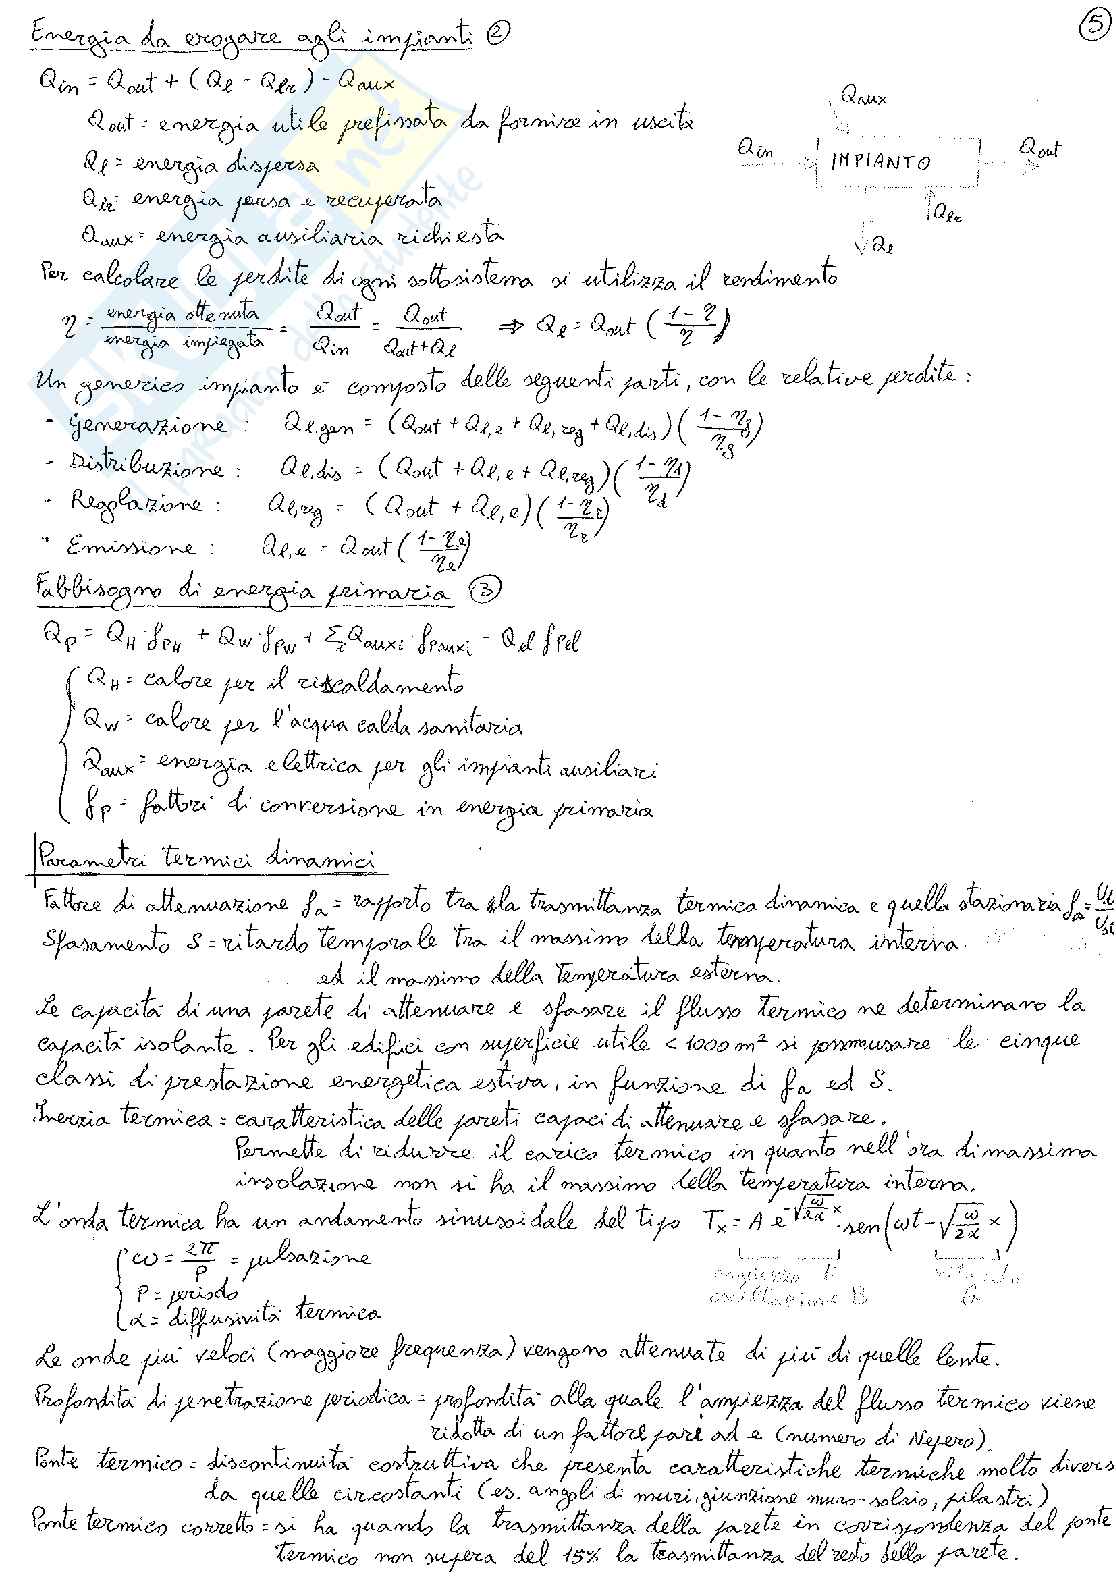 5
Energia da erogare agli impianti 2
Qin = Qout + (Ql - Qlr) - Qaux
Qout = energia utile prefissata da fornire in uscita
Ql = energia dispersa
Qlr = energia persa e recuperata
Qaux = energia ausiliaria richiesta
Qaux
Qin IMPIANTO Qout
Qlr
Ql
Per calcolare le perdite di ogni sottosistema si utilizza il rendimento
η = energia ottenuta / energia impiegata = Qout / Qin = Qout / Qout+Ql ⇒ Ql = Qout (1-η / η)
Un generico impianto è composto delle seguenti parti, con le relative perdite:
- Generazione: Ql,gen = (Qout + Ql,e + Ql,reg + Ql,dis) (1-ηg / ηg)
- Distribuzione: Ql,dis = (Qout + Ql,e + Ql,reg) (1-ηd / ηd)
- Regolazione: Ql,reg = (Qout + Ql,e) (1-ηr / ηr)
- Emissione: Ql,e = Qout (1-ηe / ηe)
Fabbisogno di energia primaria 3
Qp = QH·fpH + QW·fpW + Σi Qauxi fpauxi - Qel fpel
QH = calore per il riscaldamento
QW = calore per l'acqua calda sanitaria
Qaux = energia elettrica per gli impianti ausiliari
fp = fattori di conversione in energia primaria
Parametri termici dinamici
Fattore di attenuazione fa = rapporto tra la trasmittanza termica dinamica e quella stazionaria fa =
Sfasamento S = ritardo temporale tra il massimo della temperatura interna
ed il massimo della temperatura esterna.
Le capacità di una parete di attenuare e sfasare il flusso termico ne determinano la
capacità isolante. Per gli edifici con superficie utile < 1000 m² si possono usare le cinque
classi di prestazione energetica estiva, in funzione di fa ed S.
Inerzia termica = caratteristica delle pareti capaci di attenuare e sfasare.
Permette di ridurre il carico termico in quanto nell'ora di massima
insolazione non si ha il massimo della temperatura interna.
L'onda termica ha un andamento sinussoidale del tipo Tx = A e^(-√(ω/2α) x) · sen(ωt - √(ω/2α) x)
ω = 2π / P = pulsazione
P = periodo
α = diffusività termica
Le onde più veloci (maggiore frequenza) vengono attenuate di più di quelle lente.
Profondità di penetrazione periodica = profondità alla quale l'ampiezza del flusso termico viene
ridotta di un fattore pare ad e (numero di Nepero).
Ponte termico = discontinuità costruttiva che presenta caratteristiche termiche molto divers
da quelle circostanti (es. angoli di muri, giunzione muro-solaio, pilastri)
Ponte termico corretto = si ha quando la trasmittanza della parete in corrispondenza del ponte
termico non supera del 15% la trasmittanza del resto della parete.